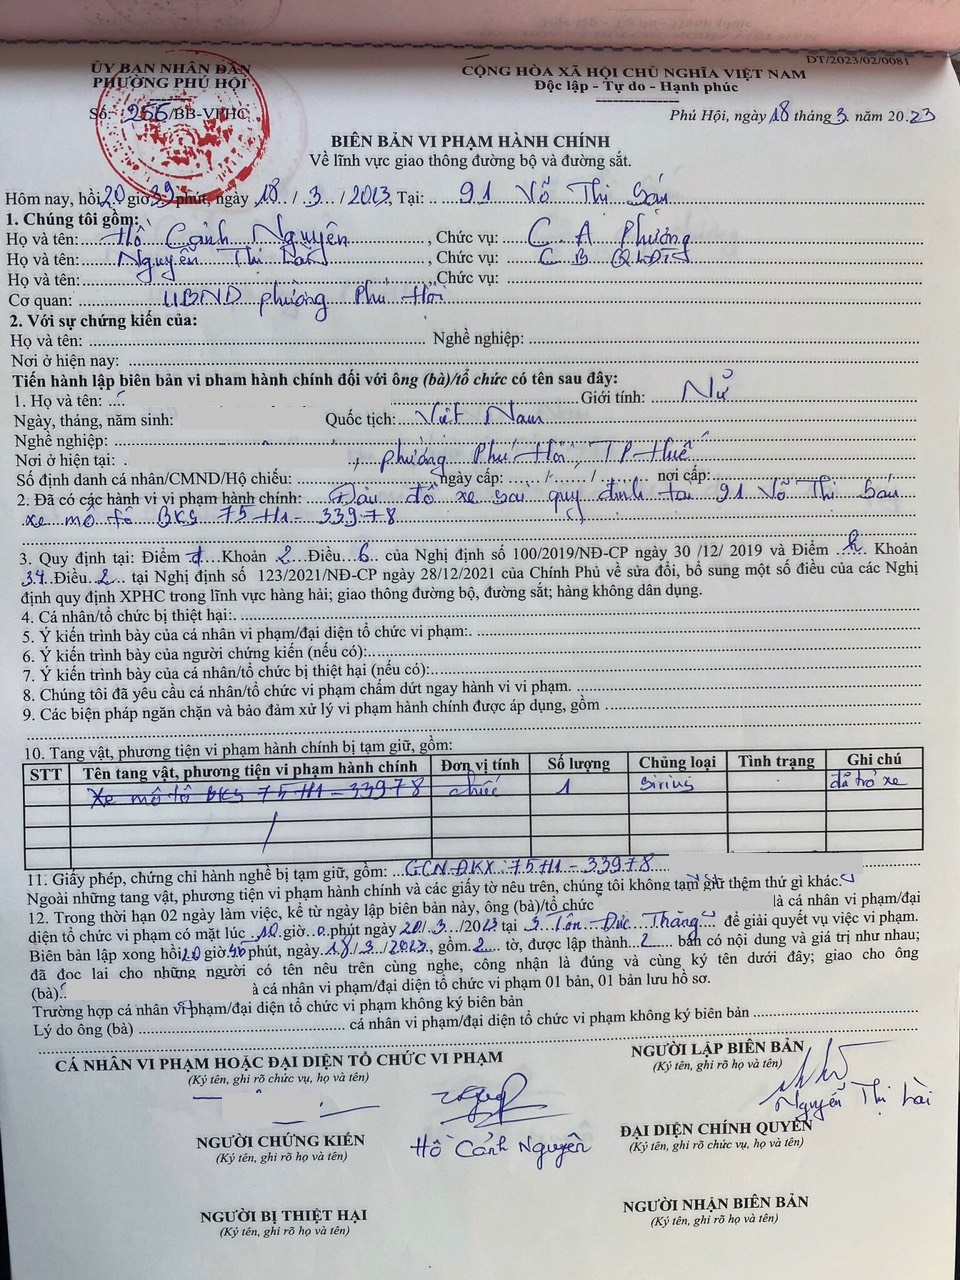 DT/2023/02/0081
ỦY BAN NHÂN DÂN
PHƯỜNG PHÚ HỘI
Số: 256/BB-VPHC
CỘNG HÒA XÃ HỘI CHỦ NGHĨA VIỆT NAM
Độc lập - Tự do - Hạnh phúc
Phú Hội, ngày 18 tháng 3 năm 2023
BIÊN BẢN VI PHẠM HÀNH CHÍNH
Về lĩnh vực giao thông đường bộ và đường sắt.
Hôm nay, hồi 20 giờ 39 phút, ngày 18 / 3 / 2023 Tại: 91 Võ Thị Sáu
1. Chúng tôi gồm:
Họ và tên: Hồ Cảnh Nguyên, Chức vụ: C A Phường
Họ và tên: Nguyễn Thị, Chức vụ: C B QLĐT
Họ và tên:, Chức vụ:
Cơ quan: UBND phường Phú Hội
2. Với sự chứng kiến của:
Họ và tên: Nghề nghiệp:
Nơi ở hiện nay:
Tiến hành lập biên bản vi phạm hành chính đối với ông (bà)/tổ chức có tên sau đây:
1. Họ và tên: Giới tính: Nữ
Ngày, tháng, năm sinh: Quốc tịch: Việt Nam
Nghề nghiệp:
Nơi ở hiện tại: , phường Phú Hội, TP Huế
Số định danh cá nhân/CMND/Hộ chiếu: ngày cấp: / / nơi cấp:
2. Đã có các hành vi vi phạm hành chính: Đậu đỗ xe sai quy định tại 91 Võ Thị Sáu
xe mô tô BKS 75H1-33978
3. Quy định tại: Điểm đ Khoản 2 Điều 6 của Nghị định số 100/2019/NĐ-CP ngày 30 /12/ 2019 và Điểm h Khoản
34 Điều 2 tại Nghị định số 123/2021/NĐ-CP ngày 28/12/2021 của Chính Phủ về sửa đổi, bổ sung một số điều của các Nghị
định quy định XPHC trong lĩnh vực hàng hải; giao thông đường bộ, đường sắt; hàng không dân dụng.
4. Cá nhân/tổ chức bị thiệt hại:
5. Ý kiến trình bày của cá nhân vi phạm/đại diện tổ chức vi phạm:
6. Ý kiến trình bày của người chứng kiến (nếu có):
7. Ý kiến trình bày của cá nhân/tổ chức bị thiệt hại (nếu có):
8. Chúng tôi đã yêu cầu cá nhân/tổ chức vi phạm chấm dứt ngay hành vi vi phạm.
9. Các biện pháp ngăn chặn và bảo đảm xử lý vi phạm hành chính được áp dụng, gồm
10. Tang vật, phương tiện vi phạm hành chính bị tạm giữ, gồm:
STT Tên tang vật, phương tiện vi phạm hành chính Đơn vị tính Số lượng Chủng loại Tình trạng Ghi chú
Xe mô tô BKS 75H1-33978 chiếc 1 Sirius đã trả xe
11. Giấy phép, chứng chỉ hành nghề bị tạm giữ, gồm: GCNĐKX 75H1-33978
Ngoài những tang vật, phương tiện vi phạm hành chính và các giấy tờ nêu trên, chúng tôi không tạm giữ thêm thứ gì khác.
12. Trong thời hạn 02 ngày làm việc, kể từ ngày lập biên bản này, ông (bà)/tổ chức là cá nhân vi phạm/đại
diện tổ chức vi phạm có mặt lúc 10 giờ 0 phút ngày 20/3/2023 tại 3 Tôn Đức Thắng để giải quyết vụ việc vi phạm.
Biên bản lập xong hồi 20 giờ 46 phút, ngày 18/3/2023, gồm 2 tờ, được lập thành 2 bản có nội dung và giá trị như nhau;
đã đọc lại cho những người có tên nêu trên cùng nghe, công nhận là đúng và cùng ký tên dưới đây; giao cho ông
(bà) à cá nhân vi phạm/đại diện tổ chức vi phạm 01 bản, 01 bản lưu hồ sơ.
Trường hợp cá nhân vi phạm/đại diện tổ chức vi phạm không ký biên bản
Lý do ông (bà) cá nhân vi phạm/đại diện tổ chức vi phạm không ký biên bản
CÁ NHÂN VI PHẠM HOẶC ĐẠI DIỆN TỔ CHỨC VI PHẠM
(Ký tên, ghi rõ chức vụ, họ và tên)
NGƯỜI LẬP BIÊN BẢN
(Ký tên, ghi rõ họ và tên)
Nguyễn Thị Lài
NGƯỜI CHỨNG KIẾN
(Ký tên, ghi rõ họ và tên)
Hồ Cảnh Nguyên
ĐẠI DIỆN CHÍNH QUYỀN
(Ký tên, ghi rõ chức vụ, họ và tên)
NGƯỜI BỊ THIỆT HẠI
(Ký tên, ghi rõ họ và tên)
NGƯỜI NHẬN BIÊN BẢN
(Ký tên, ghi rõ họ và tên)